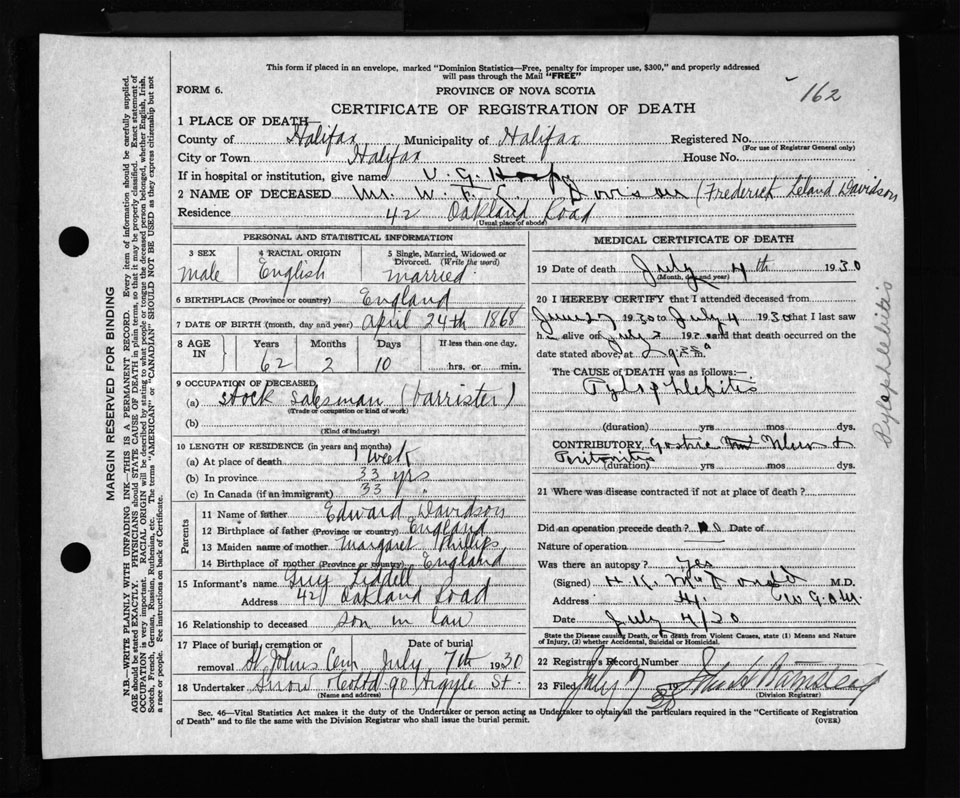 This form if placed in an envelope, marked "Dominion Statistics—Free, penalty for improper use, $300," and properly addressed
will pass through the Mail "FREE"
162
FORM 6.
PROVINCE OF NOVA SCOTIA
CERTIFICATE OF REGISTRATION OF DEATH
1 PLACE OF DEATH
County of Halifax Municipality of Halifax Registered No.
(For use of Registrar General only)
City or Town Halifax Street House No.
If in hospital or institution, give name V. G. Hosp
2 NAME OF DECEASED Mr. W. F. L. Davison (Frederick Leland Davidson
Residence 42 Oakland Road
(Usual place of abode)
PERSONAL AND STATISTICAL INFORMATION
3 SEX 4 RACIAL ORIGIN 5 Single, Married, Widowed or
Divorced. (Write the word)
male English married
6 BIRTHPLACE (Province or country) England
7 DATE OF BIRTH (month, day and year) April 24th 1868
8 AGE IN Years Months Days If less than one day.
62 2 10 hrs. or min.
9 OCCUPATION OF DECEASED
(a) Stock Salesman (barrister)
(Trade or occupation or kind of work)
(b)
(Kind of industry)
10 LENGTH OF RESIDENCE (in years and months)
(a) At place of death 1 week
(b) In province 33 yrs
(c) In Canada (if an immigrant) 33 "
Parents
11 Name of father Edward Davidson
12 Birthplace of father (Province or country) England
13 Maiden name of mother Margaret Phillips
14 Birthplace of mother (Province or country) England
15 Informant's name Guy Liddell
Address 42 Oakland Road
16 Relationship to deceased son in law
17 Place of burial, cremation or Date of burial
removal St Johns Cem July 7th 1930
18 Undertaker Snow & Co Ltd 90 Argyle St.
(Name and address)
MEDICAL CERTIFICATE OF DEATH
19 Date of death July 4th 1930
(Month, day and year)
20 I HEREBY CERTIFY that I attended deceased from
June 27 1930 to July 4 1930 that I last saw
h alive on July 2 192 and that death occurred on the
date stated above, at m.
The CAUSE OF DEATH was as follows:—
Pylephlebitis
(duration) yrs mos dys.
CONTRIBUTORY Gastric Ulcer &
Peritonitis
(duration) yrs mos dys.
21 Where was disease contracted if not at place of death?
Did an operation precede death? no Date of
Nature of operation
Was there an autopsy? Yes
(Signed) H. K. McDonald M.D.
Address
Date July 4/30
State the Disease causing Death, or in death from Violent Causes, state (1) Means and Nature
of Injury, (2) whether Accidental, Suicidal or Homicidal.
22 Registrar's Record Number
23 Filed July 7 1930
(Division Registrar)
Sec. 46—Vital Statistics Act makes it the duty of the Undertaker or person acting as Undertaker to obtain all the particulars required in the "Certificate of Registration
of Death" and to file the same with the Division Registrar who shall issue the burial permit.
(OVER)
MARGIN RESERVED FOR BINDING
N.B.—WRITE PLAINLY WITH UNFADING INK—THIS IS A PERMANENT RECORD. Every item of information should be carefully supplied.
AGE should be stated EXACTLY. PHYSICIANS should STATE CAUSE OF DEATH in plain terms, so that it may be properly classified. Exact statement of
OCCUPATION is very important. RACIAL ORIGIN will be described by stating to what people or tongue the deceased person belonged, whether English, Irish,
Scotch, French, German, Russian, Ruthenian, etc. The terms "AMERICAN" or "CANADIAN" SHOULD NOT BE USED as they express citizenship but not
a race or people. See instructions on back of Certificate.
Pylephlebitis